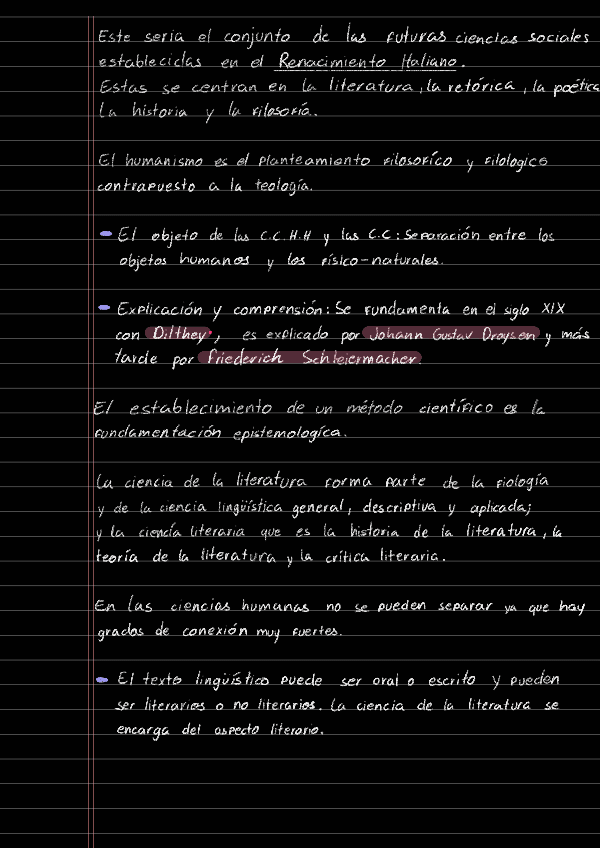 Este sería el conjunto de las futuras ciencias sociales
establecidas en el Renacimiento Italiano.
Estas se centran en la literatura, la retórica, la poética
la historia y la filosofía.
El humanismo es el planteamiento filosofíco y filologico
contrapuesto a la teología.
El objeto de las C.C.H.H y las C.C: Separación entre los
objetos humanos y los físico-naturales.
Explicación y comprensión: Se fundamenta en el siglo XIX
con Dilthey, es explicado por Johann Gustav Droysen y más
tarde por Friederich Schleiermacher.
El establecimiento de un método científico es la
fundamentación epistemologíca.
La ciencia de la literatura forma parte de la fiología
y de la ciencia lingüística general, descriptiva y aplicada;
y la ciencía literaria que es la historia de la literatura, la
teoría de la literatura y la crítica literaria.
En las ciencias humanas no se pueden separar ya que hay
grados de conexión muy fuertes.
El texto lingüístico puede ser oral o escrito y pueden
ser literarios o no literarios. La ciencia de la literatura se
encarga del aspecto literario.